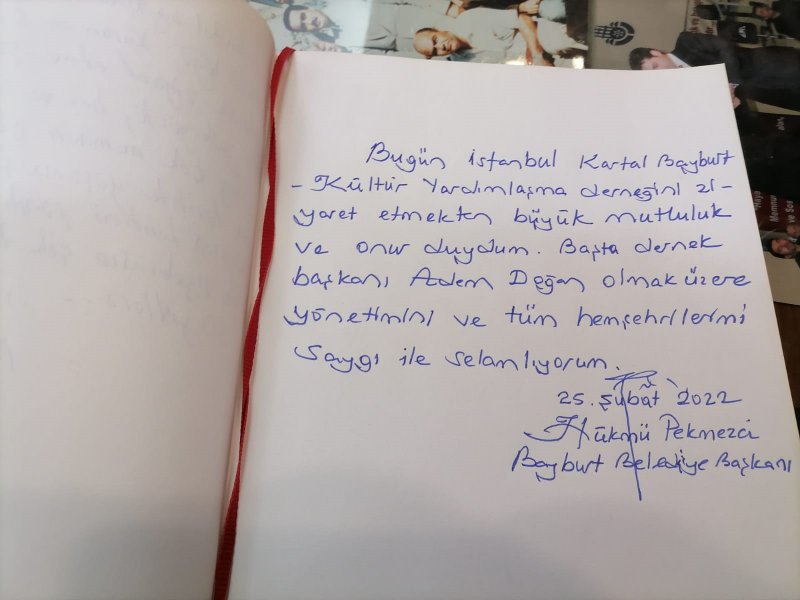 Bugün İstanbul Kartal Bayburt
- Kültür Yardımlaşma derneğini zi-
yaret etmekten büyük mutluluk
ve onur duydum. Başta dernek
başkanı Adem Doğan olmak üzere
yönetimini ve tüm hemşehrilerimi
saygı ile selamlıyorum.
25. Şubat 2022
Hükmü Pekmezci
Bayburt Belediye Başkanı
Memnun
ve Sos